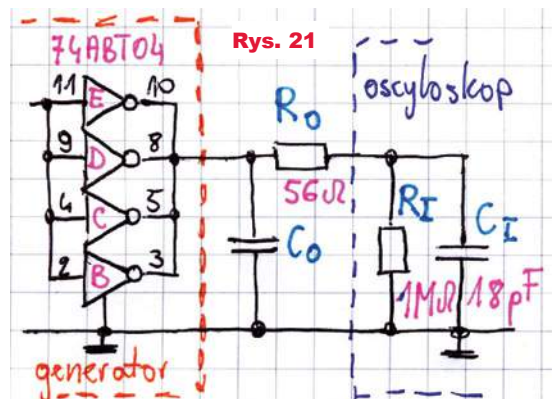 74ABT04
Rys. 21
11 E 10
9 D 8
4 C 5
2 B 3
generator
R₀
56Ω
C₀
oscyloskop
R_I
1MΩ
C_I
18pF